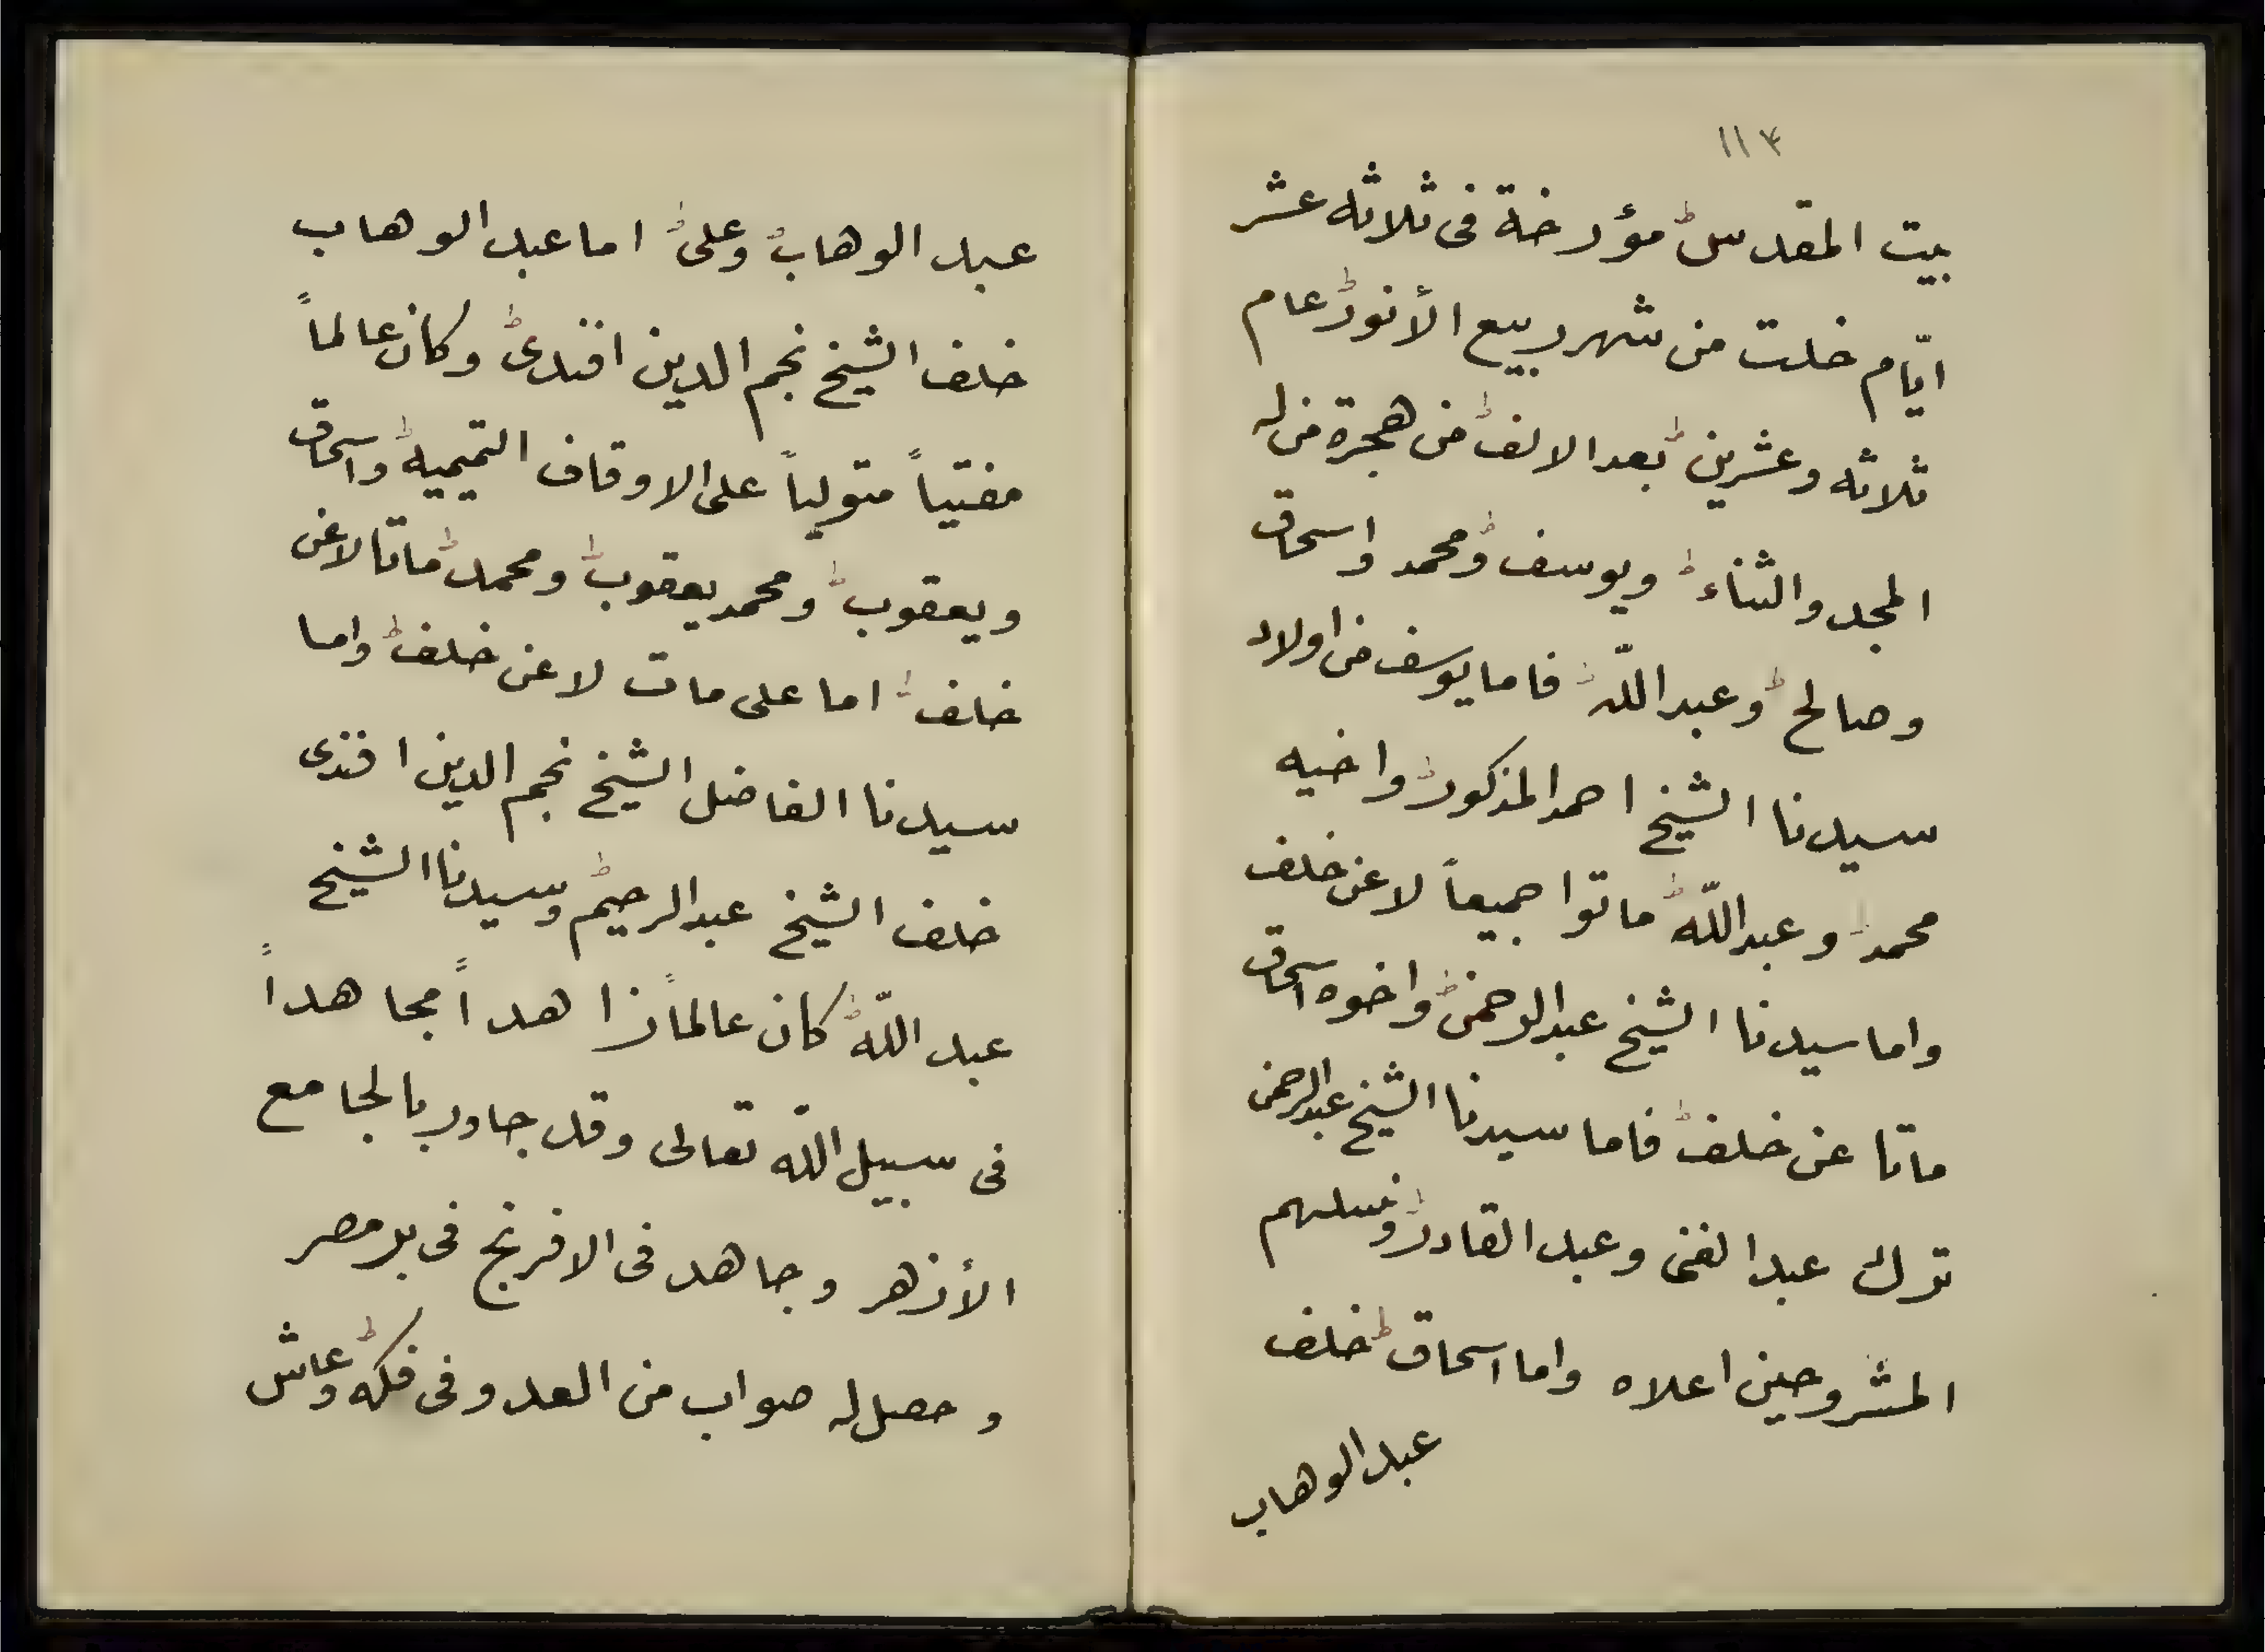 ١١٣
بيت المقدس مؤرخة فى ثلاثه عشر
ايّام خلت من شهر ربيع الأنور عام
ثلاثه وعشرين بعد الالف من هجرة من له
المجد والثناء ويوسف ومحمد واسحاق
وصالح وعبد اللّه فاما يوسف من اولاد
سيدنا الشيخ احمد المذكور واخيه
محمد وعبد اللّه ماتوا جميعاً لا عن خلف
واما سيدنا الشيخ عبد الرحمن واخوه اسحاق
ماتا عن خلف فاما سيدنا الشيخ عبد الرحمن
ترك عبد الغنى وعبد القادر ونسلهم
المشروحين اعلاه واما اسحاق خلف
عبد الوهاب
عبد الوهاب وعلى اما عبد الوهاب
خلف الشيخ نجم الدين افندى وكان عالماً
مفتياً متولياً على الاوقاف التميميه واسحاق
ويعقوب ومحمد يعقوب ومحمد ماتا لا عن
خلف اما على مات لا عن خلف واما
سيدنا الفاضل الشيخ نجم الدين افندى
خلف الشيخ عبد الرحيم وسيدنا الشيخ
عبد اللّه كان عالماً زاهداً مجاهداً
فى سبيل اللّه تعالى وقد جاور بالجامع
الأزهر وجاهد فى الافرنج فى بر مصر
وحصل له صواب من العدو فى فكه وعاش